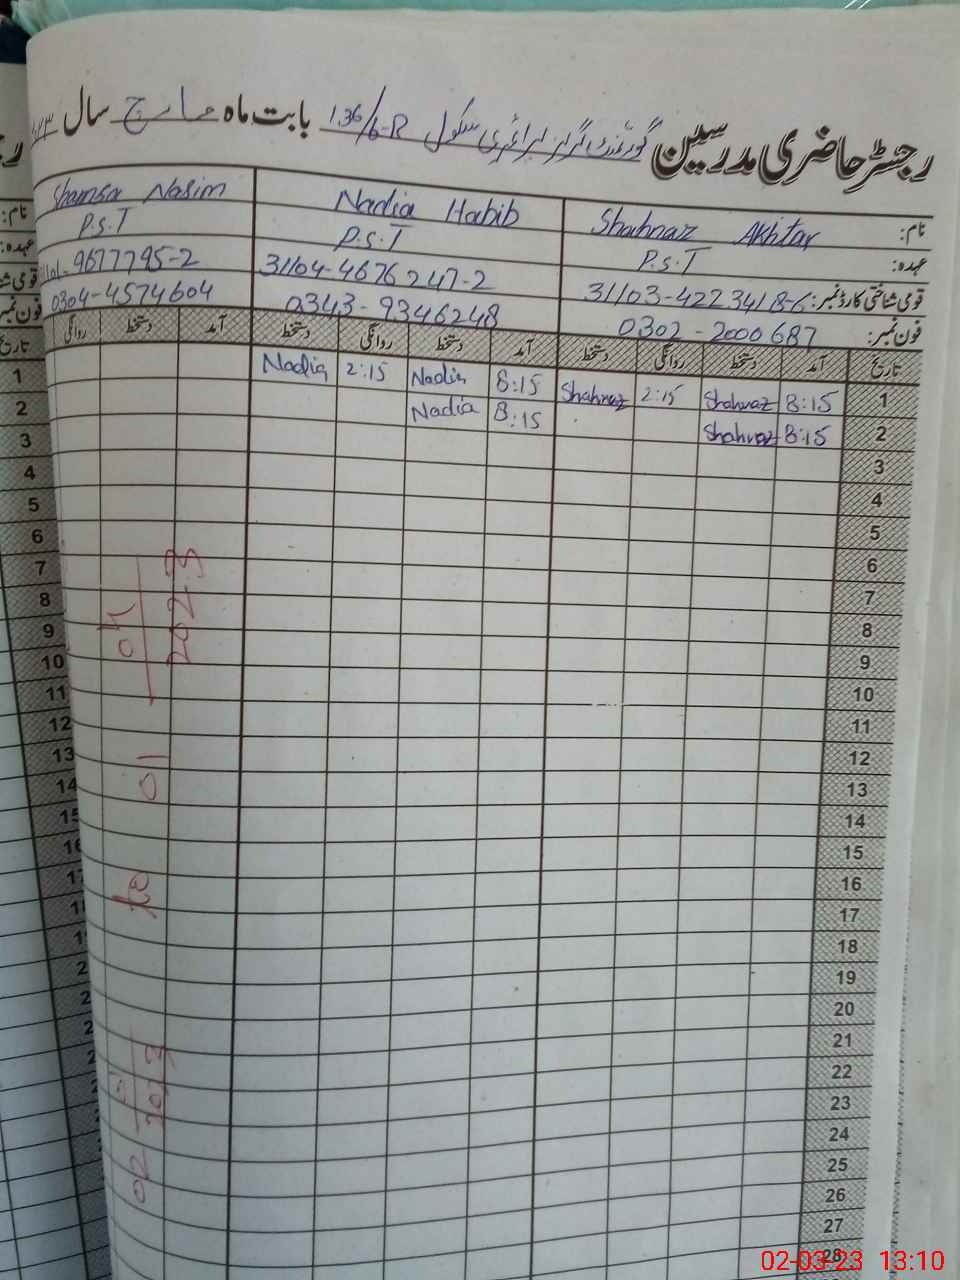 رجسٹر حاضری مدرسین گورنمنٹ گرلز پرائمری سکول 136/6-R بابت ماہ مارچ سال
نام: Shahnaz Akhtar Nadia Habib Shamsa Nasim
عہدہ: P.S.T P.S.T P.S.T
قومی شناختی کارڈ نمبر: 31103-4223418-6 31104-4676247-2 9677795-2
فون نمبر: 0302-2000687 0343-9346248 0304-4574604
تاریخ آمد دستخط روانگی دستخط آمد دستخط روانگی دستخط آمد دستخط روانگی
1 8:15 Shahnaz 2:15 Shahnaz 8:15 Nadia 2:15 Nadia
2 8:15 Shahnaz 8:15 Nadia
3
4
5
6
7
8
9
10
11
12
13
14
15
16
17
18
19
20
21
22
23
24
25
26
27
28
نام:
عہدہ:
فون نمبر
تاریخ
1
2
3
4
5
6
7
8
9
10
11
12
13
14
15
2023
01
02-03-23 13:10